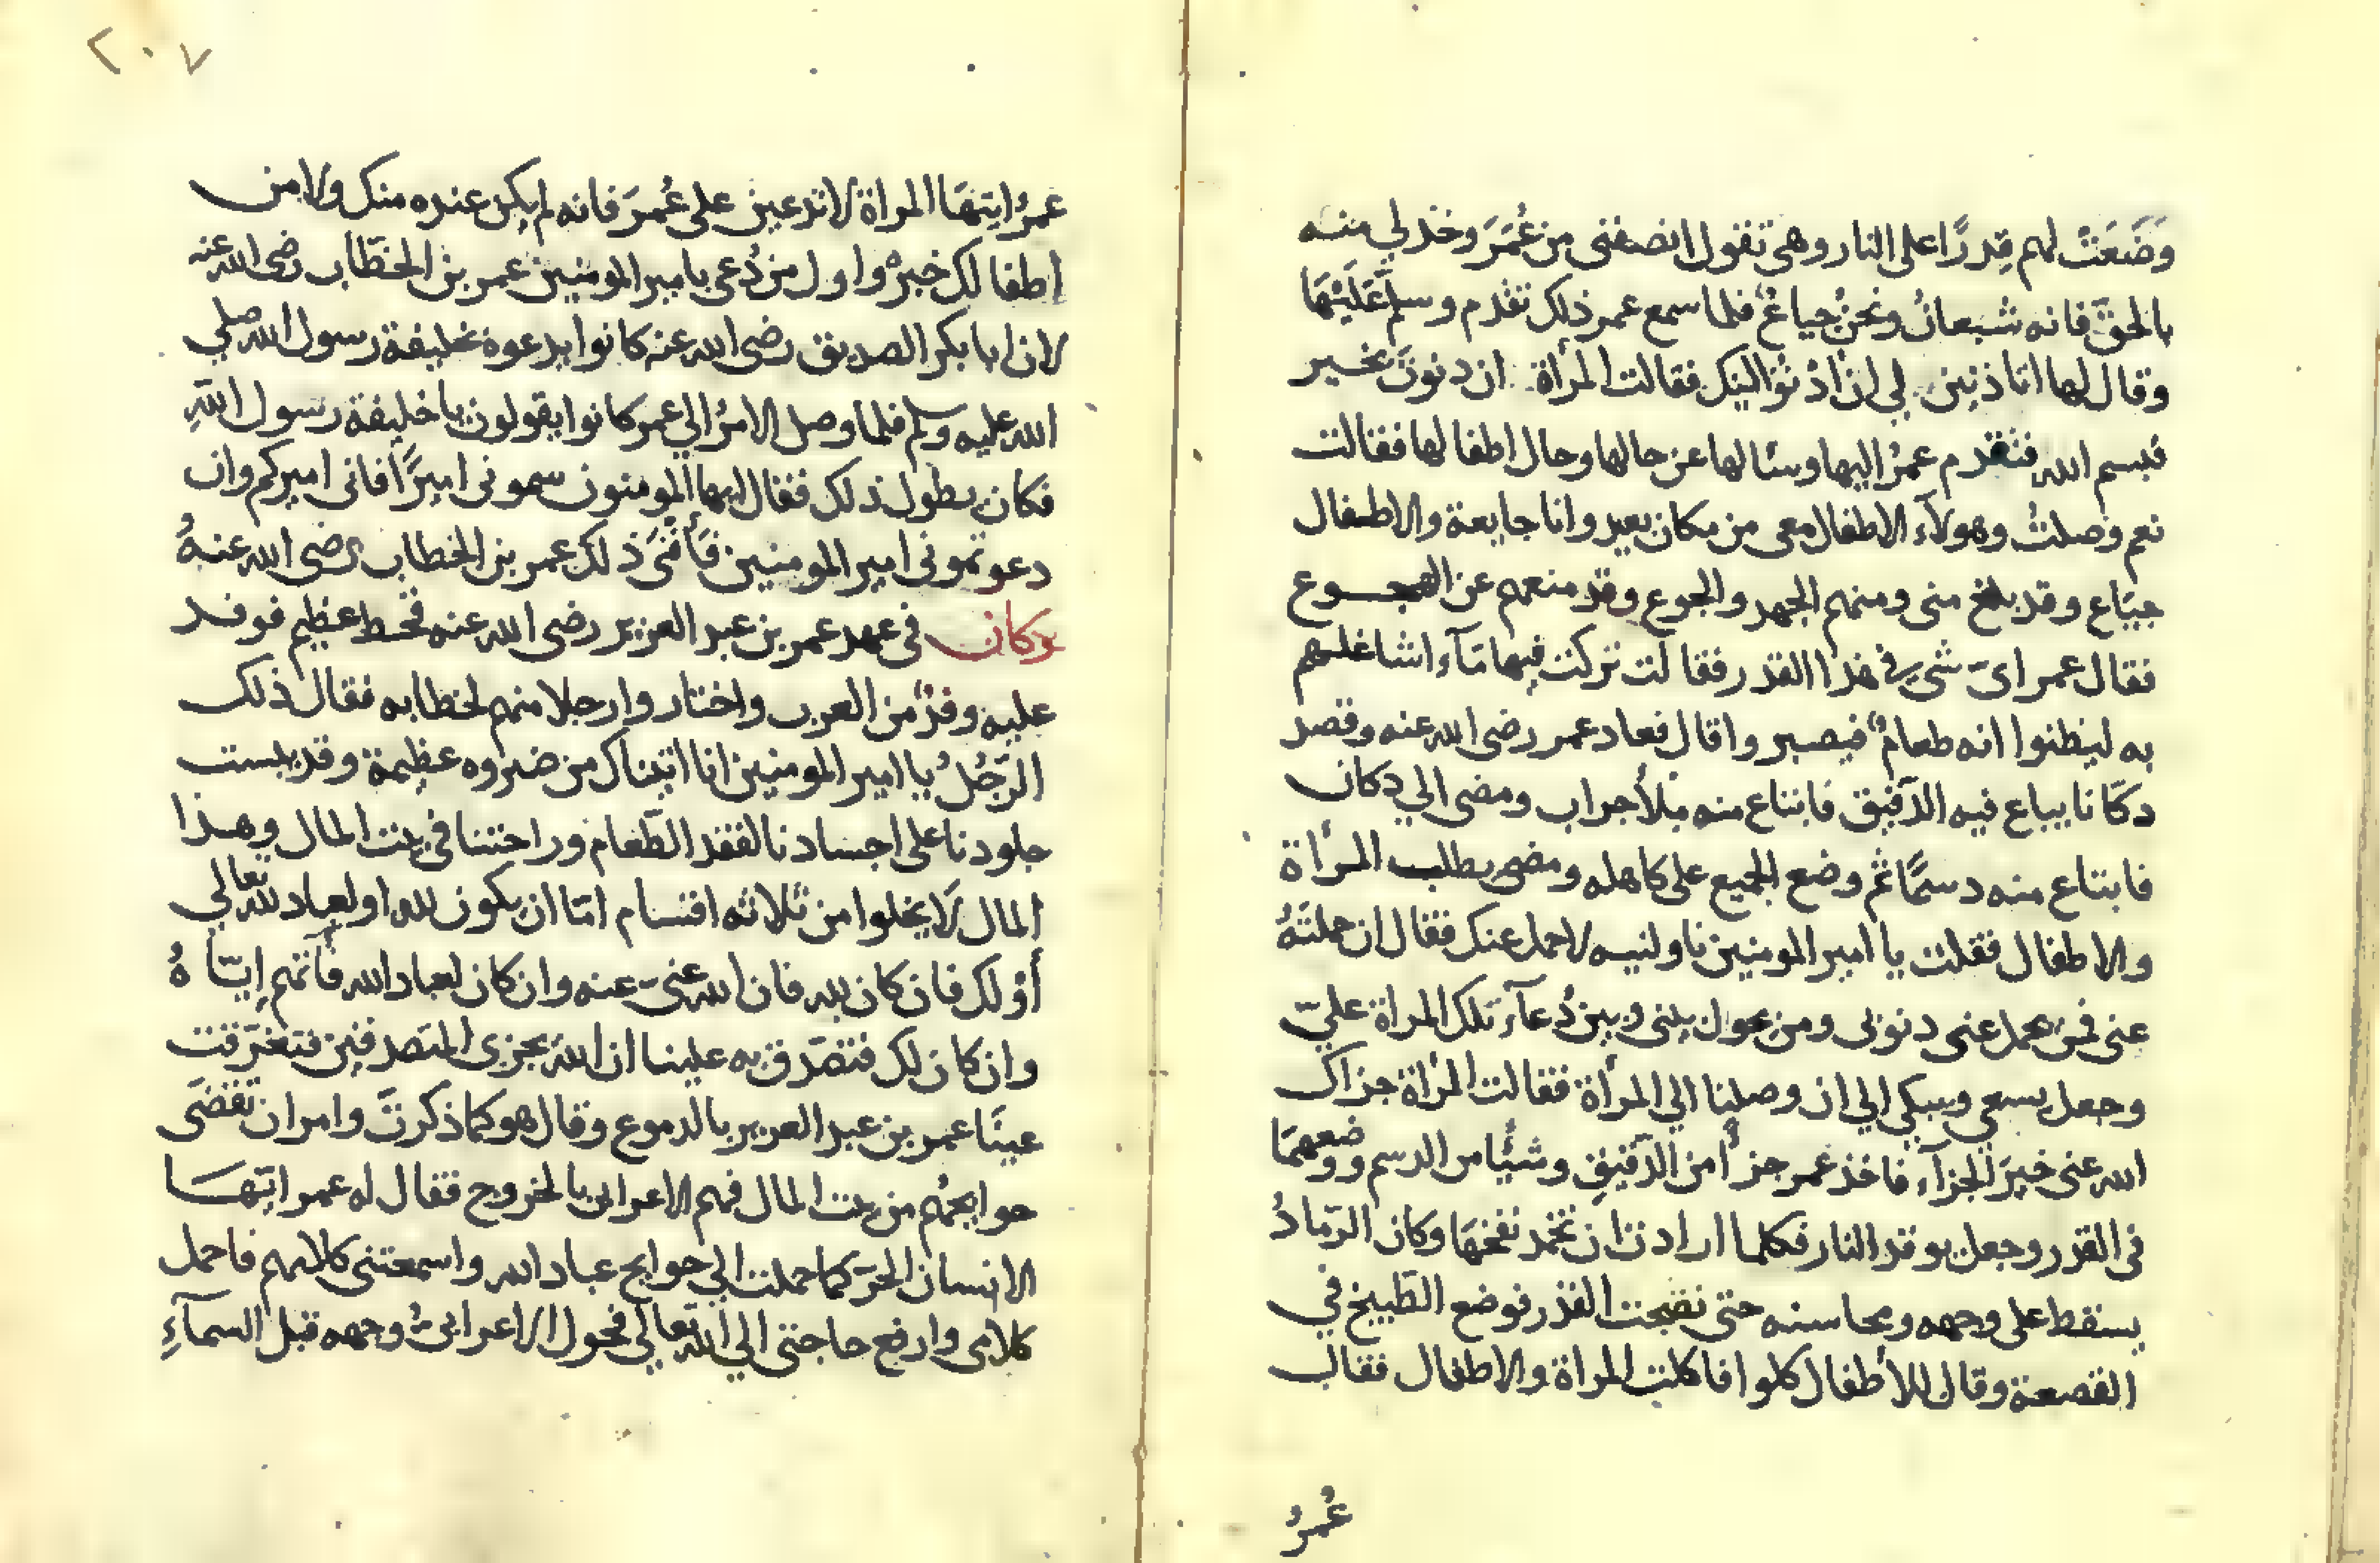 وَضَعَتْ لهم قِدرًا على النار وهي تقول انصفنى من عُمَرَ وخذ لي منه
بالحقّ فانه شبعانُ ونحنُ جياعٌ فلما سمع عمر ذلك تقدم وسلم عَلَيْهَا
وقال لها اتاذنين لي ان ادْنُوَ اليك فقالت المرأة ان دنوتَ بخير
فبسم الله فتقدم عمرُ اليها وسئالها عن حالها وحال اطفالها فقالت
نعم وصلتُ وهولآء الاطفال معى من مكان بعيد وانا جايعة والاطفال
جيَاع وقد بلغ منى ومنهم الجهد والجوع وقد منعهم عن الهجوع
فقال عمر اىّ شى فى هذا القدر فقالت تركت فيها مَآء اشاغلهم
به ليظنوا انه طعامٌ فيصبروا قال فعاد عمر رضى الله عنه وقصد
دكّانا يباع فيه الدّقيق فابتاع منه ملأ جراب ومضى الي دكان
فابتاع منه دسمًا ثم وضع الجميع على كاهله ومضى يطلب المرأة
والاطفال فقلت يا امير المومنين ناولنيه لاحمل عنك فقال ان حملتَهُ
عنى فمن يحمل عنى دنوبى ومن يحول بينى وبين دُعآء تلك المراة عليّ
وجعل يسعي ويبكي الي ان وصلنا الي المرأة فقالت المرْاة جزاك
الله عنى خيرَ الجزآء فاخذ عمر جزأ من الدّقيقِ وشيُا من الدسم ووضعهمَا
فى القدر وجعل يوقد النار فكلما ارادت ان تخمد نفخهَا وكان الرّمادُ
يسقط على وجهه ومحاسنه حتى نضجت القدر فوضع الطّبيخ في
القصعة وقال للأطفال كلوا فاكلت المراة والاطفال فقال
عُمرُ
٢٠٧
عمرُ ايتهَا المراة لا تدعين على عُمرَ فانه لم يكن عنده منك ولا من
اطفالك خبرٌ واول من دُعى بامير المومنين عمر بن الخطّاب رضى الله عنه
لان ابا بكر الصديق رضى الله عنه كانوا يدعوه بخليفة رسول الله صلي
الله عليه وسلم فلما وصل الامرُ الي عمر كانوا يقولون يا خليفة رسول اللهِ
فكان يطول ذلك فقال ايها المومنون سمونى اميرًا فانى اميركم وان
دعوتمونى امير المومنين فَأنَىَ ذلك عمر بن الخطاب رضى الله عنهُ
وكان فى عهد عمر بن عبد العزيز رضى الله عنه قحط عظيم فوفد
عليه وفدٌ من العرب واختاروا رجلا منهم لخطابه فقال ذلك
الرّجُلُ يا امير المومنين انا اتيناك من ضروه عظِيمة وقد يبست
جلودنا على اجسادنا لفقد الطّعام وراحتنا فى بيت المال وهذا
المال لَا يخلوا من ثلاثه اقسام امّا ان يكون لله او لعباد لله تعالي
أوْ لك فان كان لله فان الله غنىّ عنه وان كان لعباد الله فأتهم إيّاهُ
وان كان لك فتصَدق به علينا ان اللهَ يجزى المتصَدقين فتغرَقت
عينَا عمر بن عبد العزيز بالدموع وقال هو كما ذكرتَ وامر ان تقضَى
حوايجهُم من بيت المال فهم الاعرابى بالخروج فقال له عمر ايّهَا
الانسان الحرّ كما حملت الي حوايج عباد الله واسمعتنى كلامهم فاحمل
كلامى وارفع حاجتى الي الله تعالي فحول الاعرابىُ وجهه قبل السمآءِ